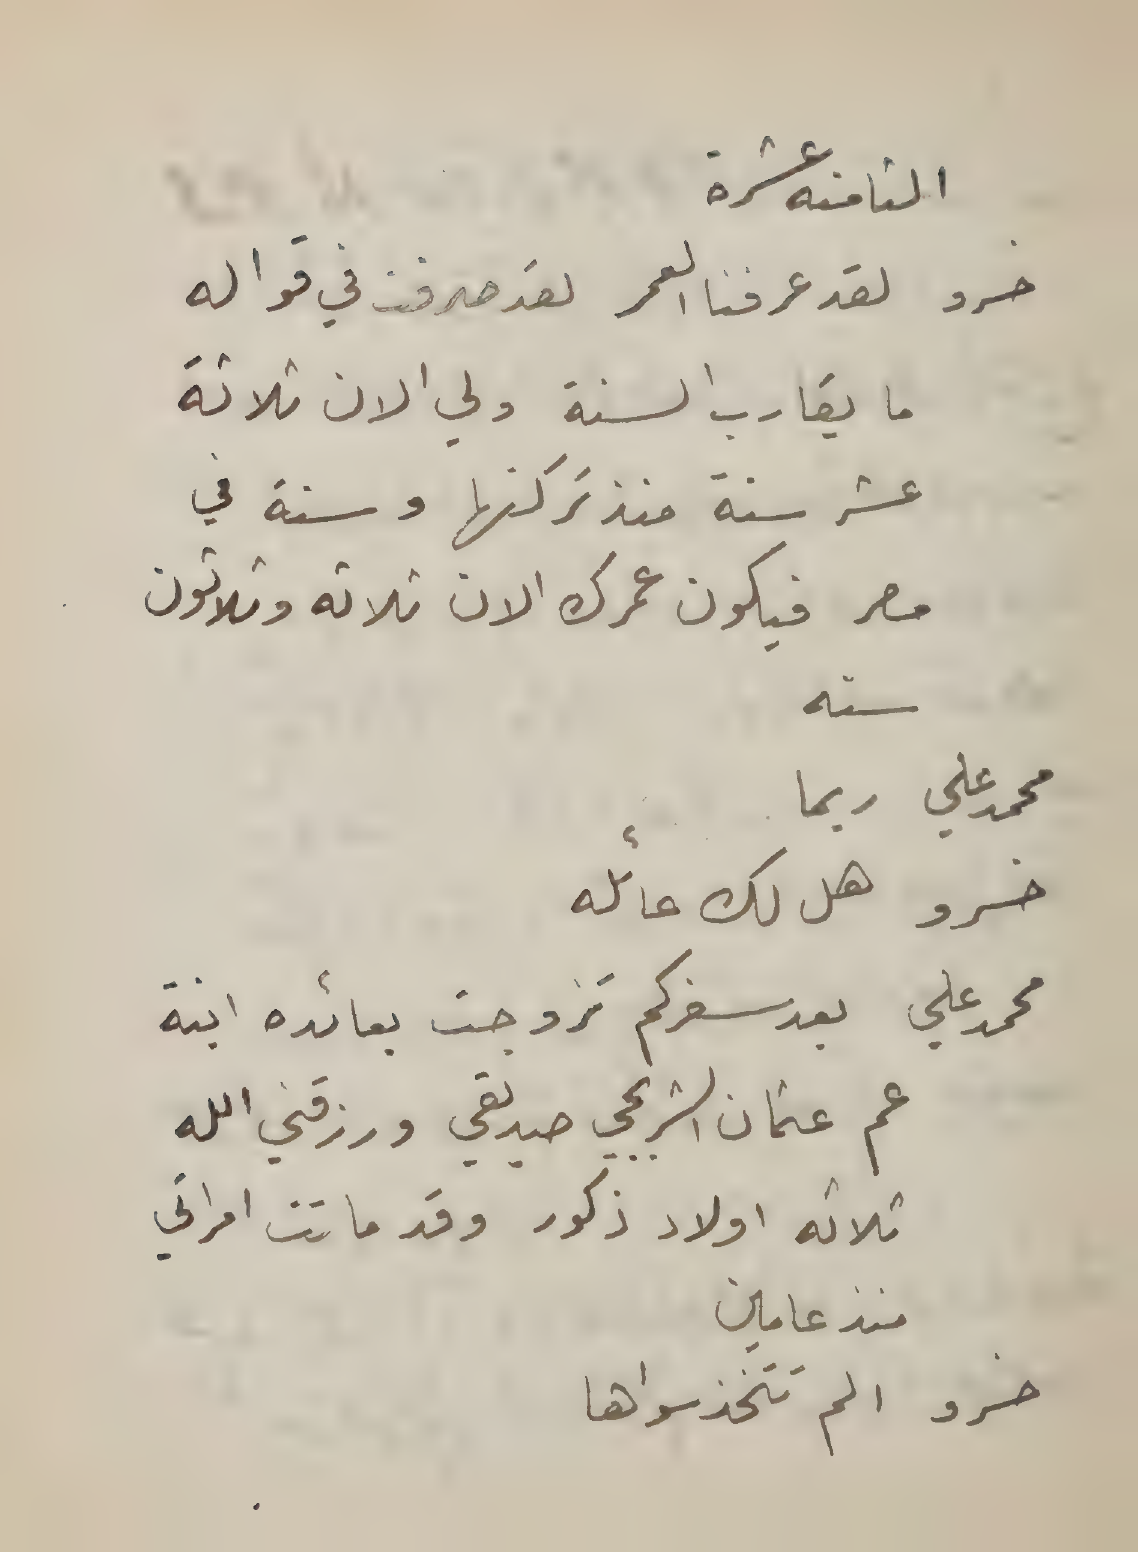 الثامنه عشرة
خسرو لقد عرفنا العمر لقد صرفت في قواله
ما يقارب السنة ولي الان ثلاثة
عشر سنة منذ تركتها وسنة في
مصر فيكون عمرك الان ثلاثه وثلاثون
سنه
محمد علي ربما
خسرو هل لك عائله
محمد علي بعد سفركم تزوجت بعائده ابنة
عم عثمان الشربجي صديقي ورزقني الله
ثلاثه اولاد ذكور وقد ماتت امراتي
منذ عامين
خسرو الم تتخذ سواها